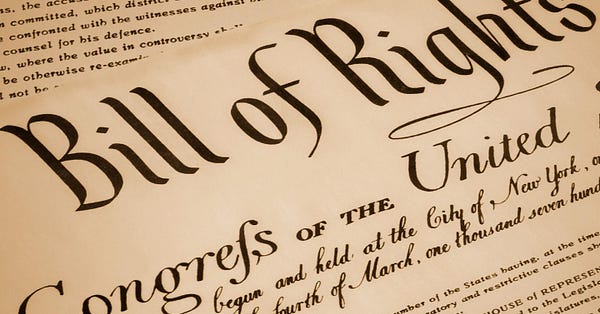 ns, the accus
committed, which district
confronted with the witnesses against
counsel for his defence.
where the value in controversy shall
be otherwise re-exami
not be
Bill of Rights
Congreſs OF THE United
begun and held at the City of New York, o
fourth of March, one thousand seven hund
mber of the States having, at the time
ratory and restrictive clauses sh
HOUSE of REPRESEN
Legisla
islatures,